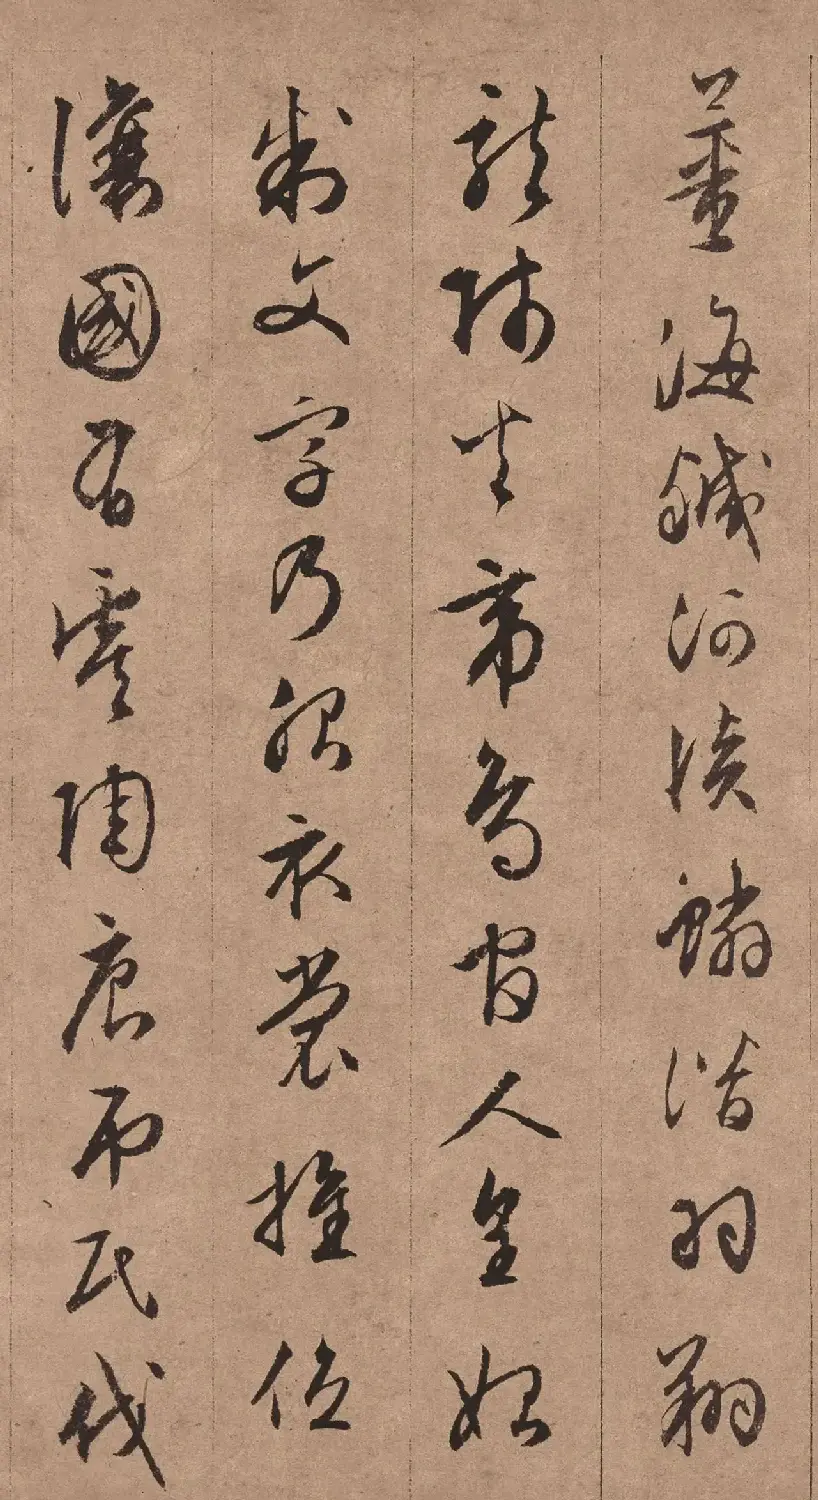 薑海鹹河淡鱗潛羽翔
龍師火帝鳥官人皇始
制文字乃服衣裳推位
讓國有虞陶唐弔民伐